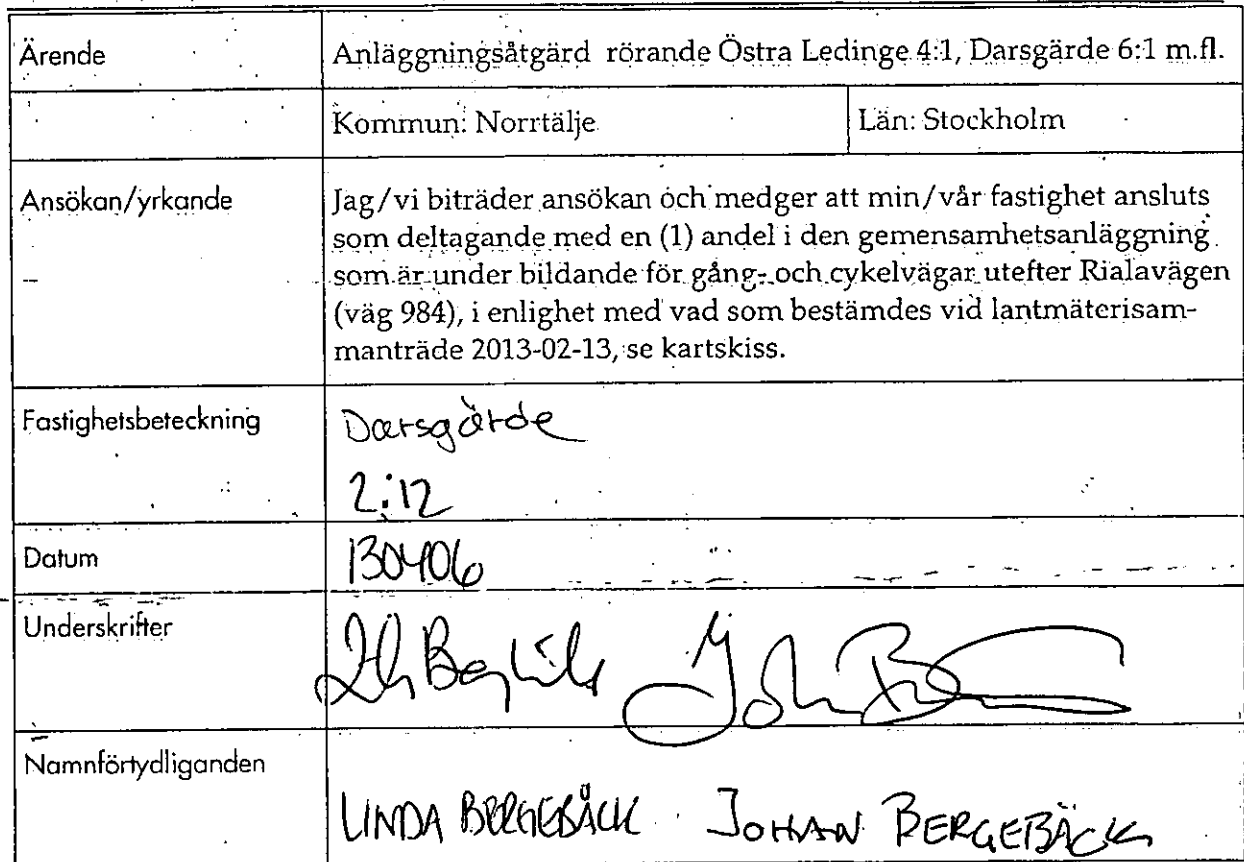 Ärende
Anläggningsåtgärd rörande Östra Ledinge 4:1, Darsgärde 6:1 m.fl.
Kommun: Norrtälje
Län: Stockholm
Ansökan/yrkande
Jag/vi biträder ansökan och medger att min/vår fastighet ansluts
som deltagande med en (1) andel i den gemensamhetsanläggning
som är under bildande för gång- och cykelvägar utefter Rialavägen
(väg 984), i enlighet med vad som bestämdes vid lantmäterisam-
manträde 2013-02-13, se kartskiss.
Fastighetsbeteckning
Darsgärde
2:12
Datum
130406
Underskrifter
Namnförtydliganden
LINDA BERGEBÄCK JOHAN BERGEBÄCK